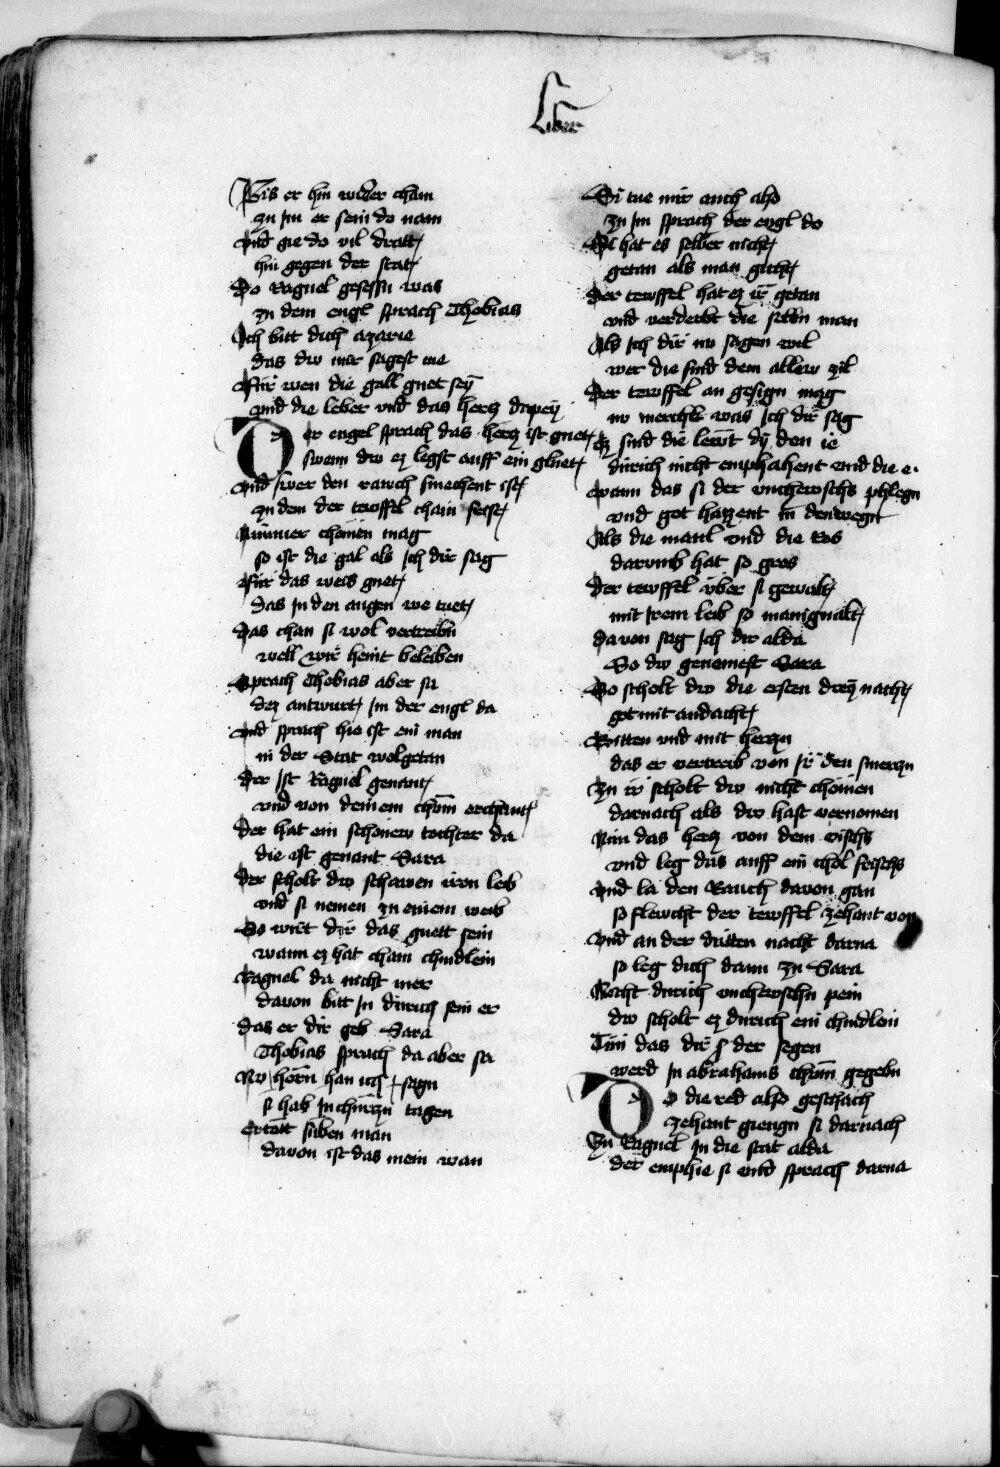 Liber
Bis er hin wider cham
zu im er sein do nam
vnd gie do vil dratt
hin gegen der stat
Do Raguel gesessn was
zu dem engl sprach Thobias
Ich bitt dich azarie
das dw mir sagest me
Für wen die gall guet seӱ
vnd die leber vnd das hercz dapeӱ
Der engel sprach das hercz ist guet
swenn dw ez legst auff ein gluet
Vnd swer den rauch smechent ist
zu dem der tewffel chain frist
Nimmer chömen mag
so ist die gal als ich dir sag
Für das wees guet
das in den augen we tuet
Das chan si wol vertreibn
well wir heint beleiben
Sprach Thobias aber sa
dez antwurt im der engl da
Vnd sprach hie ist ein man
in der Stat wolgetan
Der ist Raguel genant
vnd von deinem chom erchant
Der hat ein schonew tochter da
die ist genant Sara
Der scholt dw schawen irn leib
vnd si nemen zu einem weib
So wirt dir das guett sein
wann ez hat cham chindlein
Raguel da nicht mer
davon bitt in durich sein er
Das er dir geb Sara
Thobias sprach da aber sa
Nw horn han ich sagn
si hab in churczn tagen
Ertött siben man
davon ist das mein wan
Si tue mir auch also
zu im sprach der engl do
Si hat es selber nicht
getan als man gicht
Der tewffel hat ez ir getan
vnd verderbt die sibn man
Als ich dir nw sagen wil
wer die sind dem allew zil
Der tewffel an gesign mag
nw merchk was ich dir sag
Ez sind die lewt dӱ den ie
durich nicht emphahent vnd die e
Wann das si der vnchewschs phlegn
vnd got haczzent in den wegn
Als die maul vnd die ros
darumb hat so gros
Der tewffel vber si gewalt
mit irem leib so manigualt
Davon sag ich dir alda
So dw genemest Sara
So scholt dw die ersten dreӱ nacht
got mit andacht
Bitten vnd mit herczn
das er vertreib von ir den smerczn
Zu ir scholt dw nicht chömen
darnach als dw hast vernomen
Nim das hercz von dem vischs
vnd leg das auff ein chol frischs
Vnd la den Rauch davon gan
so flewcht der tewffel zehant von
Vnd an der dritten nacht darna
so leg dich dann zu Sara
Recht durich vnchewschn pein
dw scholt ez durich ein chindlein
Tun das dir der segen
werd in abrahams chom gegebn
Do die red also geschach
zehant giengn si darnach
Zu Raguel in die stat alda
der emphie si vnd sprach darna